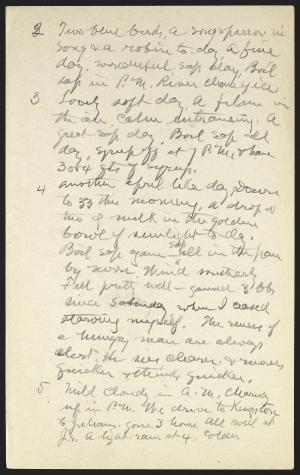 2 Two blue birds, a song sparrow in
song & a robin to-day. A fine
day. wonderful sap day, Boil
sap in P.M. River clear of ice
3 Lovely soft day, A film in
the air. Calm, entrancing. A
great sap day. Boil sap all
day, syrup off at 7 P.M. & have
3 or 4 qts of syrup.
4 Another April like day, Down
to 33 this morning, a drop
two of milk in the golden
bowl of sunlight to-day.
Boil sap again - sap all in the pan
by noon. Wind southerly
Felt pretty well - gained 3 lbs
since Saturday when I ceased
starving myself. The senses of
a hungry man are always
alert. He sees clearer, & moves
quicker & thinks quicker.
5 Mild Cloudy in A.M, Clearing
up in P.M. We drive to Kingston
to Julian, gone 3 hours. All well at
J's. A light rain at 4, colder